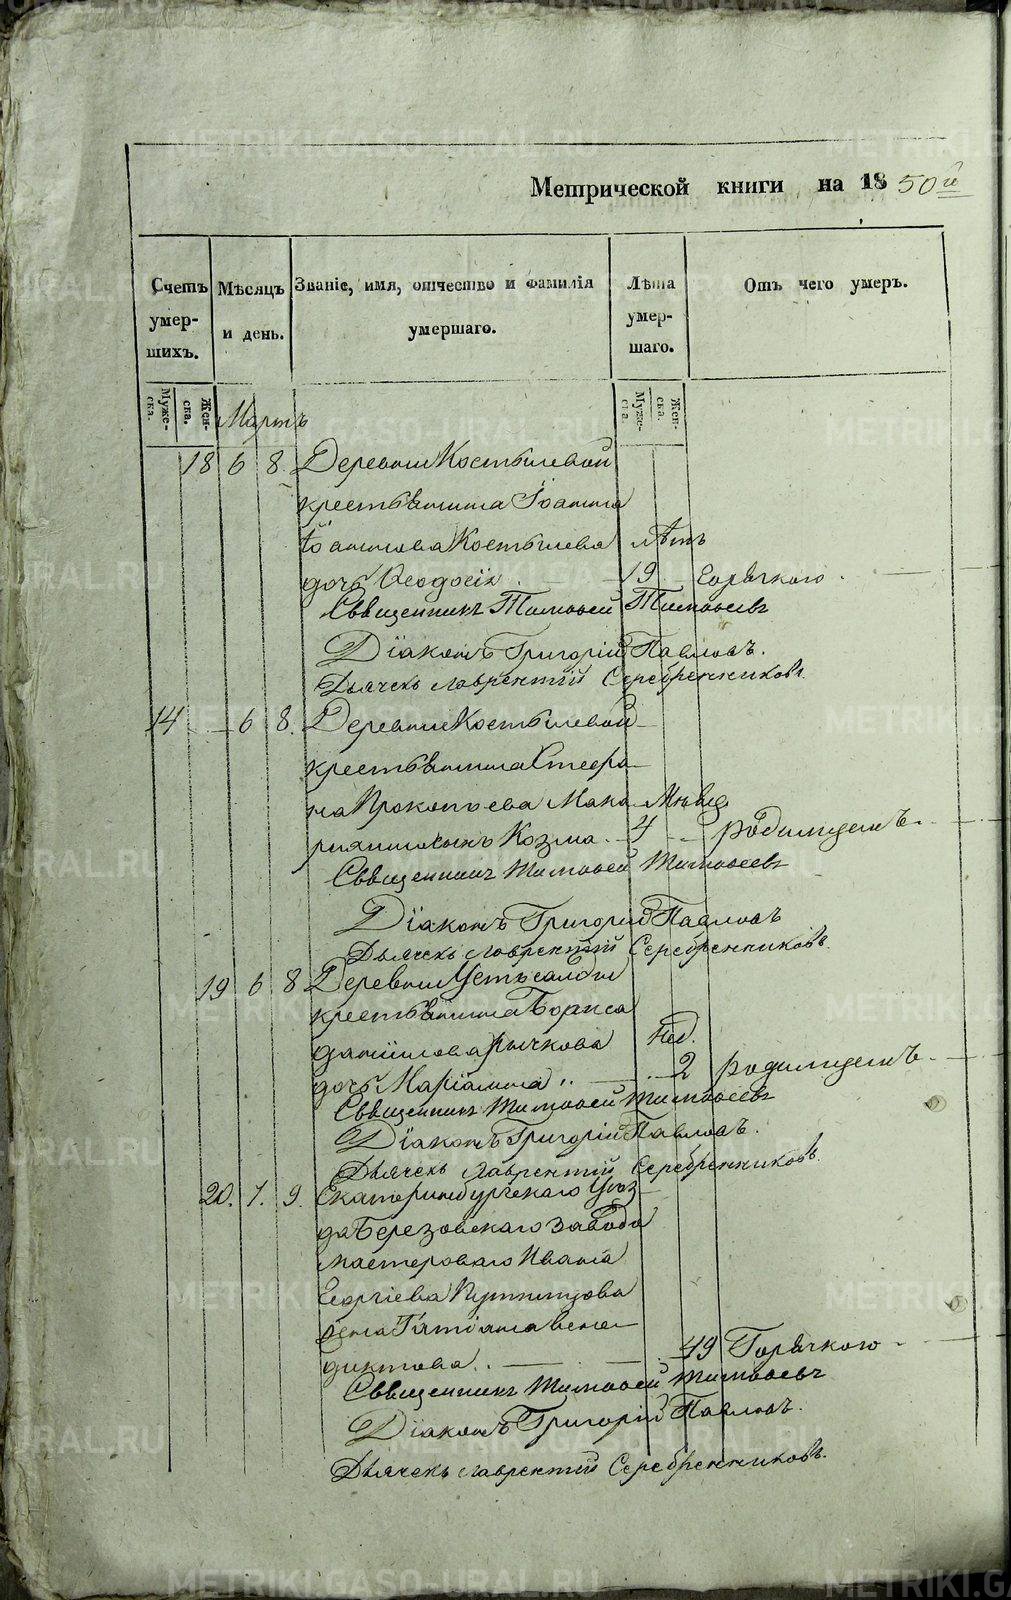 Метрической книги на 1850й
Счетъ умер-шихъ.
Мѣсяцъ и день.
Званіе, имя, отчество и фамилія умершаго.
Лѣта умер-шаго.
Отъ чего умеръ.
Муже-ска.
Жен-ска.
Муже-ска.
Жен-ска.
Мартъ
18 6 8 Деревни Костылевой
крестьянина Іоанна
Іоаннова Костылева лѣтъ
дочь Ѳеодосія 19 Горячкою
Священникъ Тимоѳей Тимоѳеевъ
Діаконъ Григорій Павловъ.
Дьячекъ Лаврентий Серебренниковъ
14 6 8. Деревни Костылевой
крестьянина Стефа-
на Прокопьева Мака- Мѣсяц
сынъ Козма 4 родимцемъ
Священникъ Тимоѳей Тимоѳеевъ
Діаконъ Григорій Павловъ
Дьячекъ Лаврентий Серебренниковъ
19 6 8 Деревни
крестьянина Бориса
Даниилова Рычкова Нед.
дочь Маріамна 2 родимцемъ
Священникъ Тимоѳей Тимоѳеевъ
Діаконъ Григорій Павловъ.
Дьячекъ Лаврентий Серебренниковъ
20. 7. 9. Екатеринбургскаго Уѣз-
да Березовскаго завода
мастероваго Ивана
Георгіева
жена Татіана Вене-
диктова 49 Горячкою
Священникъ Тимоѳей Тимоѳеевъ
Діаконъ Григорій Павловъ.
Дьячекъ Лаврентий Серебренниковъ.
METRIKI.GASO-URAL.RU